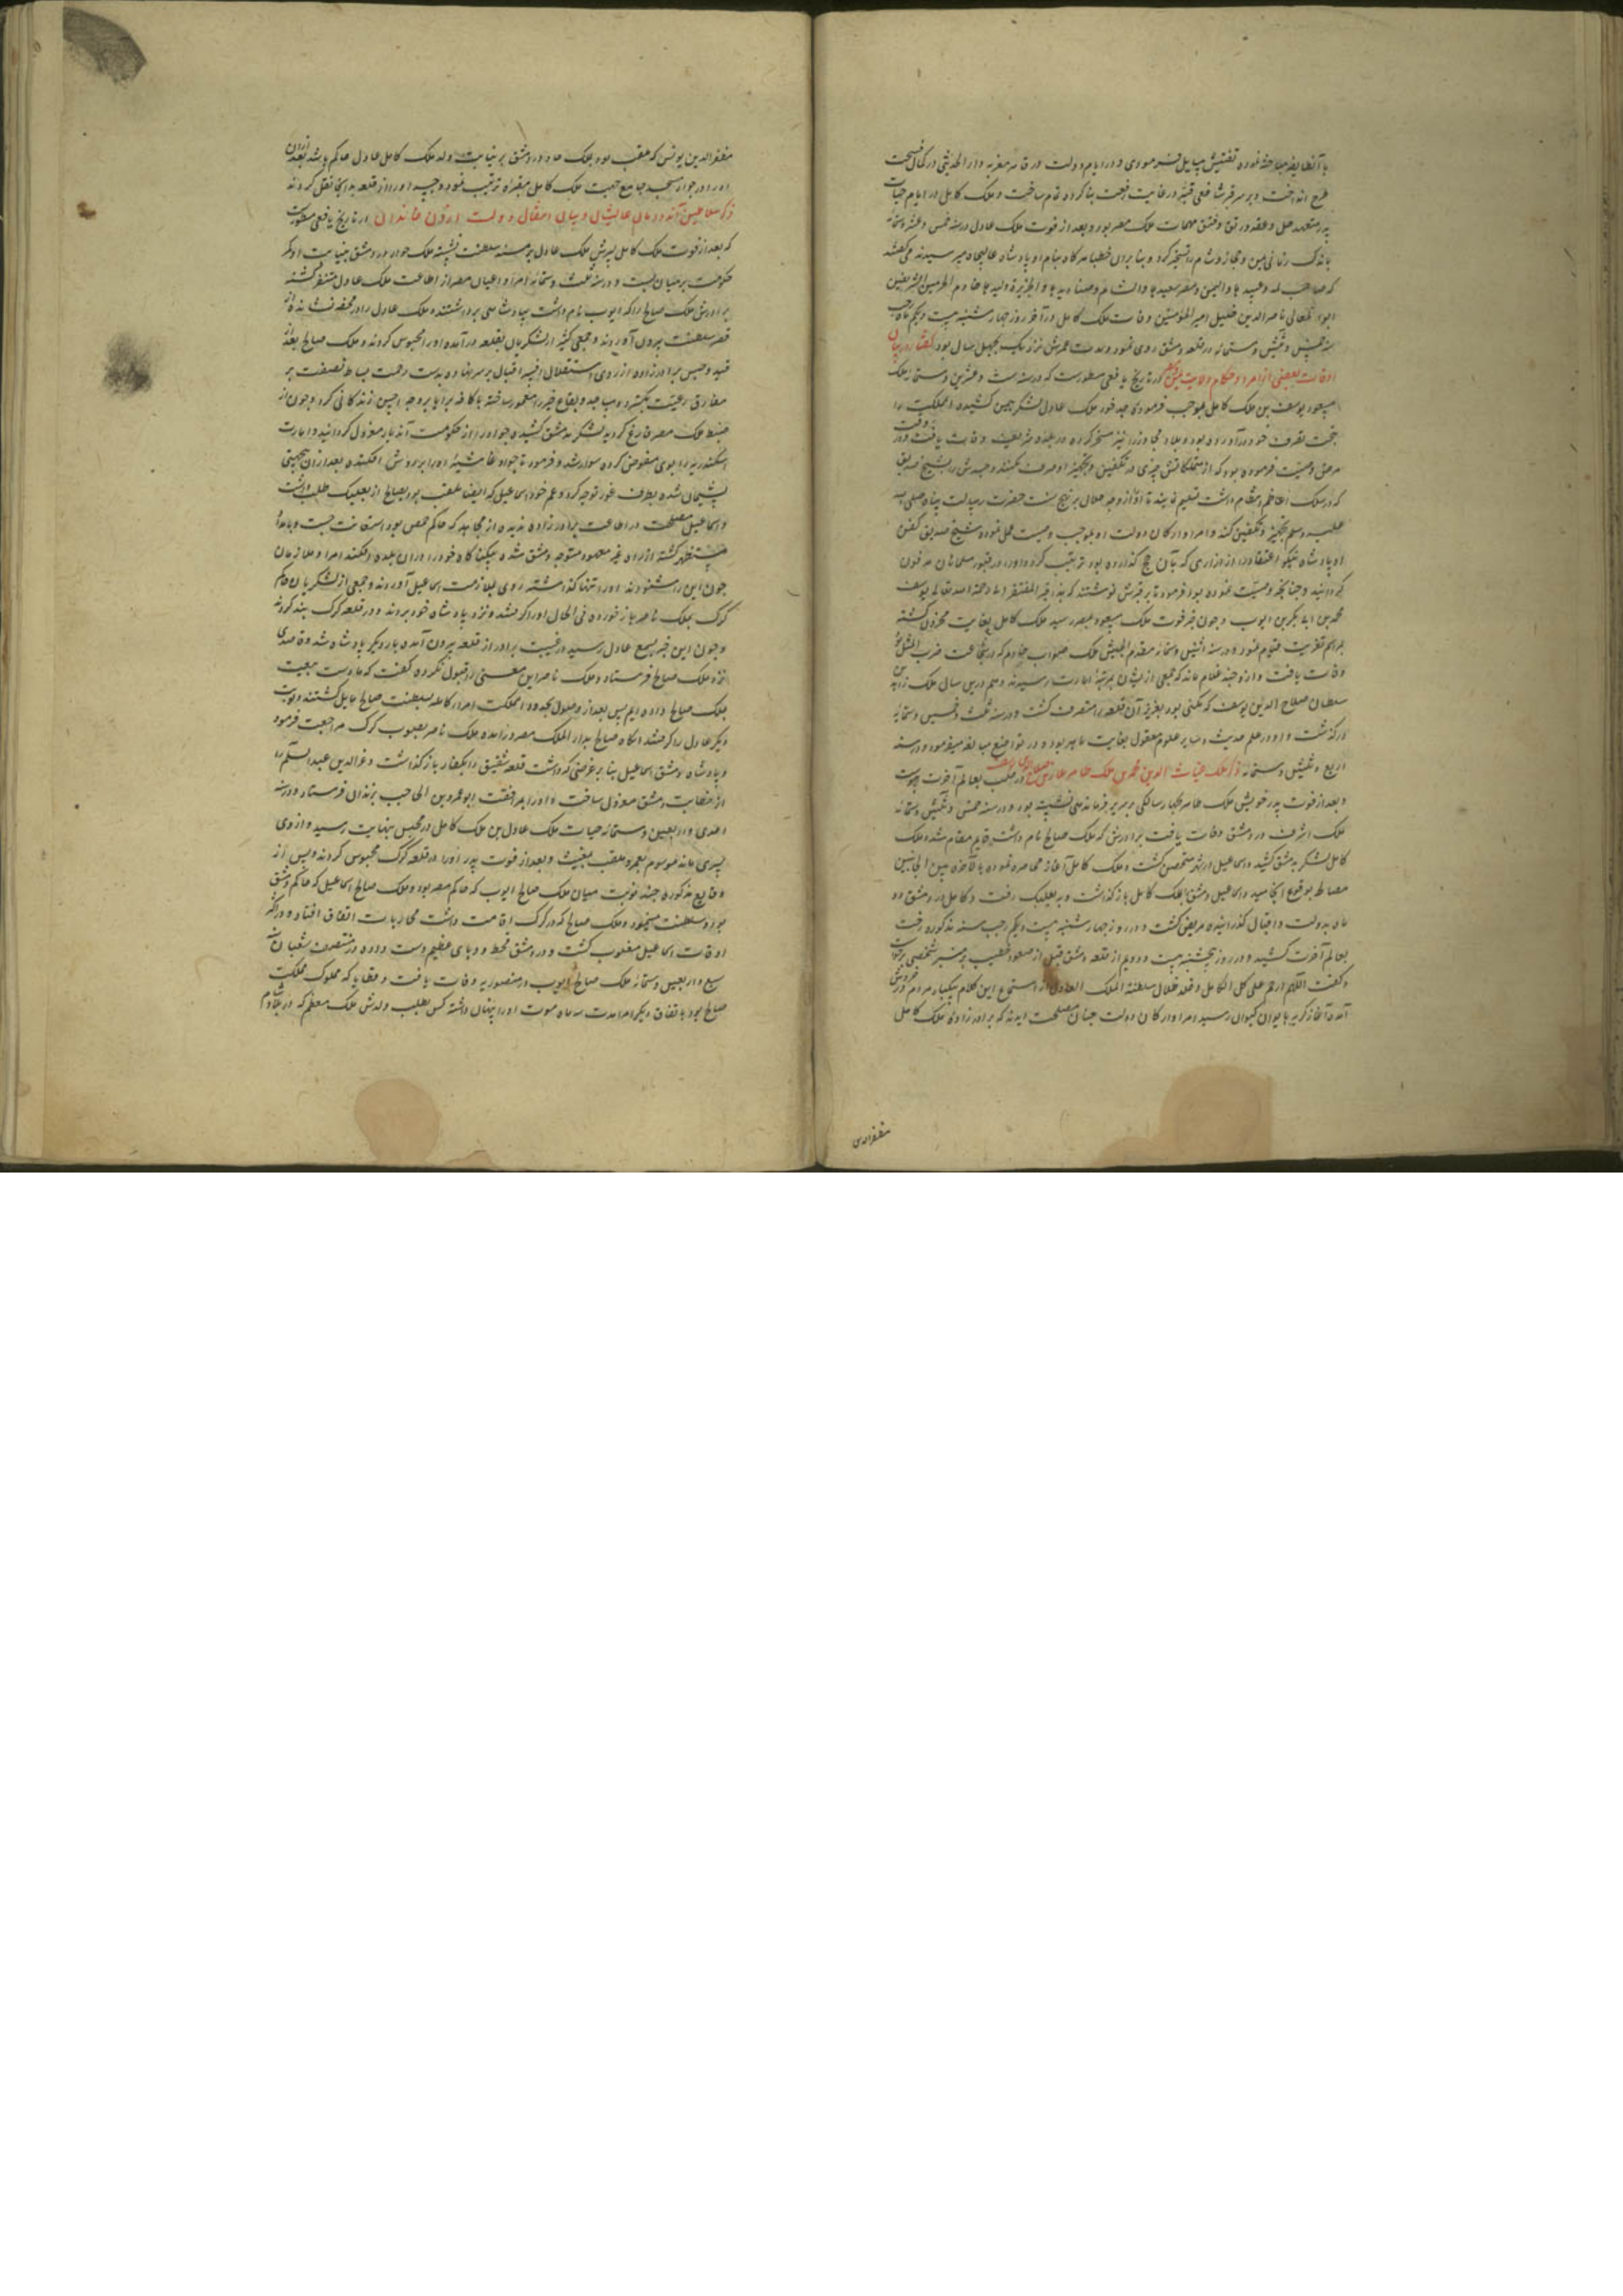 با آن طایفه مباحثه نموده تفتیش مسایل میفرمودی و در ایام دولت در قاهره معزیه دار الحدیثی در کمال فسحت
طرح انداخت و بر سر قبر شافعی قبه در غایت رفعت بنا کرده تمام ساخت و ملک کامل در ایام حیات
پدر متعهد حل و عقد و رتق و فتق مهمات ملک مصر بود و بعد از فوت ملک عادل در سنه خمس و عشر و ستمائه
باندک زمانی یمن و حجاز و شام را تسخیر کرد و بنابران خطبا هرگاه بنام او پادشاه عالیجاه میرسیدند می گفتند
که صاحب مکه و عبیدها والیمن و مصر و سعیدها والشام و صنادیدها والجزیرة و ولیدها خادم الحرمین الشریفین
ابو المعالی ناصر الدین خلیل امیر المؤمنین وفات ملک کامل در آخر روز چهارشنبه بیست و یکم ماه رجب
سنه خمس و ثلثین و ستمائه در قلعه دمشق روی نمود و مدت عمرش نزدیک بچهل سال بود گفتار در بیان
اوقات بعضی از امرا و حکام ولایت در تاریخ یافعی مسطورست که در سنه ست و عشرین و ستمائه ملک
مسعود یوسف بن ملک کامل بموجب فرموده جد خود ملک عادل لشکر بیمن کشیده آن مملکت را
بتحت تصرف خود درآورده بود و بلاد حجاز را نیز مسخر کرده در بلده شریفه وفات یافت و در وقت
مرض وصیت فرموده بود که از متملکاتش چیزی در تکفین و تجهیز او صرف نکنند و جسدش را بشیخ صدیق
که در سلک اعاظم انتظام داشت تسلیم نمایند تا او از وجه حلال بر نهج سنت حضرت رسالت پناه صلی الله
علیه وسلم تجهیز و تکفین کند و امرا و ارکان دولت او بموجب وصیت عمل نموده شیخ صدیق کفن
او پادشاه نیکو اعتقاد را از ازاری که بآن حج گذارده بود ترتیب کرد و او را در قبور مسلمانان مدفون
گردانید و چنانچه وصیت نموده بود فرمود تا بر قبرش نوشتند که هذا قبر الفقیر الی رحمة الله تعالی یوسف
محمد بن ابی بکر بن ایوب و چون خبر فوت ملک مسعود بمصر رسید ملک کامل بغایت محزون گشته
بمراسم تعزیت قیام نمود و در سنه اثنین و ستمائه مقدم الجیش ملک صواب خادم که در شجاعت ضرب المثل بود
وفات یافت و ازو چند غلام ماند که جمعی از ایشان بمرتبه امارت رسیدند و هم درین سال ملک زاهر بن
سلطان صلاح الدین یوسف که مکنی بود
درگذشت و او در علم حدیث و سایر علوم معقول بغایت ماهر بود و در تواضع مبالغه میفرمود و در سنه
اربع و ثلثین و ستمائه ملک غیاث الدین محمد بن ملک ظاهر غازی بن صلاح الدین یوسف در حلب بعالم آخرت پیوست
و بعد از فوت پدر خویش ملک ظاهر بچهار سالگی بر سریر فرماندهی نشسته بود و در سنه خمس و ثلثین و ستمائه
ملک اشرف در دمشق وفات یافت برادرش که ملک صالح نام داشت قایم مقام شد و ملک
کامل لشکر بدمشق کشید و اسماعیل در شهر متحصن گشت و ملک کامل آغاز محاصره نموده بالآخره بین الجانبین
مصالحه بوقوع انجامید و اسماعیل دمشق را بملک کامل بازگذاشت و به بعلبک رفت و کامل در دمشق دو
ماه بدولت و اقبال گذرانیده مریض گشت و در روز چهارشنبه بیست و یکم رجب سنه مذکوره رخت
بعالم آخرت کشید و در روز پنجشنبه بیست و دویم از قلعه دمشق قبل از صعود خطیب بر منبر شخصی برخاست
و گفت اللهم ارحم علی الملک الکامل و خلد ظلال سلطنة الملک العادل از استماع این کلام بیکبار مردم در خروش
آمده آغاز گریه بایوان کیوان رسید امرا و ارکان دولت چنان مصلحت دیدند که برادرزاده ملک کامل
مظفر الدین
مظفر الدین یونس که ملقب بود بملک جواد در دمشق بر نیابت ولد ملک کامل عادل حاکم باشد بعد از آن
او را در جوار مسجد جامع جهت ملک کامل مقبره ترتیب نمود و جسد او را از قلعه بدانجا نقل کردند
ذکر سلاطین آن دودمان عالیشان و بیان انتقال دولت ازان خاندان در تاریخ یافعی مسطورست
که بعد از فوت ملک کامل پسرش ملک عادل بر مسند سلطنت نشسته ملک جواد در دمشق بنیابت او کمر
حکومت بر میان بست و در سنه ثلث و ستمائه امرا و اعیان مصر از اطاعت ملک عادل متنفر گشته
برادرش ملک صالح را که ایوب نام داشت بپادشاهی برداشتند و ملک عادل را در محفه نشانده از
قصر سلطنت بیرون آوردند و جمعی کثیر از لشکریان بقلعه درآمده او را محبوس کردند و ملک صالح بعد از
قید و حبس برادرزاده از روی استقلال افسر اقبال بر سر نهاده بدست رحمت بساط نصفت بر
مفارق رعیت بگسترد و مساجد و بقاع خیر را معمور ساخته با کافه برایا بر وجه احسن زندگانی کرد و چون از
ضبط ملک مصر فارغ گردید لشکر بدمشق کشیده جواد را از حکومت آن دیار معزول گردانید و امارت
اسکندریه را بوی مفوض کرده سوار شد و فرمود تا جواد غاشیه او را بر دوش افکنده بعد از آن بجهتی
پشیمان شده بطرف غور توجه کرد و عم خود اسماعیل که ایضا ملقب بود بصالح از بعلبک طلب داشت
و اسماعیل مصلحت در اطاعت برادرزاده ندیده از مجاهد که حاکم حمص بود استعانت جست و بامداد
مستظهر گشته از راه غیر معهود متوجه دمشق شده بیکناگاه خود را دران بلده افکند امرا و ملازمان
چون این را شنودند او را تنها گذاشته روی بملازمت اسماعیل آوردند و جمعی از لشکریان حاکم
کرک بملک ناصر باز خورده فی الحال او را گرفتند و نزد پادشاه خود بردند و در قلعه کرک بند کردند
و چون این خبر بسمع عادل رسید در غیبت برادر از قلعه بیرون آمده بار دیگر پادشاه شد و قاصدی
نزد ملک صالح فرستاد و ملک ناصر این معنی را قبول نکرده گفت که ما دست بیعت
بملک صالح داده ایم پس بعد از وصول بحدود مملکت امرا کاملیه بسلطنت صالح مایل گشتند و نوبت
دیگر عادل را گرفتند آنگاه صالح بدار الملک مصر درآمده ملک ناصر بصوب کرک مراجعت فرمود
و پادشاه دمشق اسماعیل بنا بر غرضی که داشت قلعه شقیق را بکفار بازگذاشت و عز الدین عبد السلام را
از خطابت دمشق معزول ساخت و او را بمرافقت ابو عمرو بن الحاجب بزندان فرستاد و در سنه
احدی و اربعین و ستمائه حیات ملک عادل بن ملک کامل در محبس بنهایت رسید و از وی
پسری ماند موسوم بعمر و ملقب بمغیث و بعد از فوت پدر او را در قلعه کرک محبوس کردند و پس از
وقایع مذکوره چند نوبت میان ملک صالح ایوب که حاکم مصر بود و ملک صالح اسماعیل که حاکم دمشق
بود و سلطنت میخود و ملک صالح که در کرک اقامت داشت محاربات اتفاق افتاد و در اکثر
اوقات اسماعیل مغلوب گشت و در دمشق قحط و وبای عظیم دست داده در منتصف شعبان سنه
سبع و اربعین و ستمائه ملک صالح ایوب در منصوریه وفات یافت و قطایا که مملوک مملکت
صالح بود باتفاق دیگر امرا مدت سه ماه موت او را پنهان داشته کس بطلب ولدش ملک معظم که در